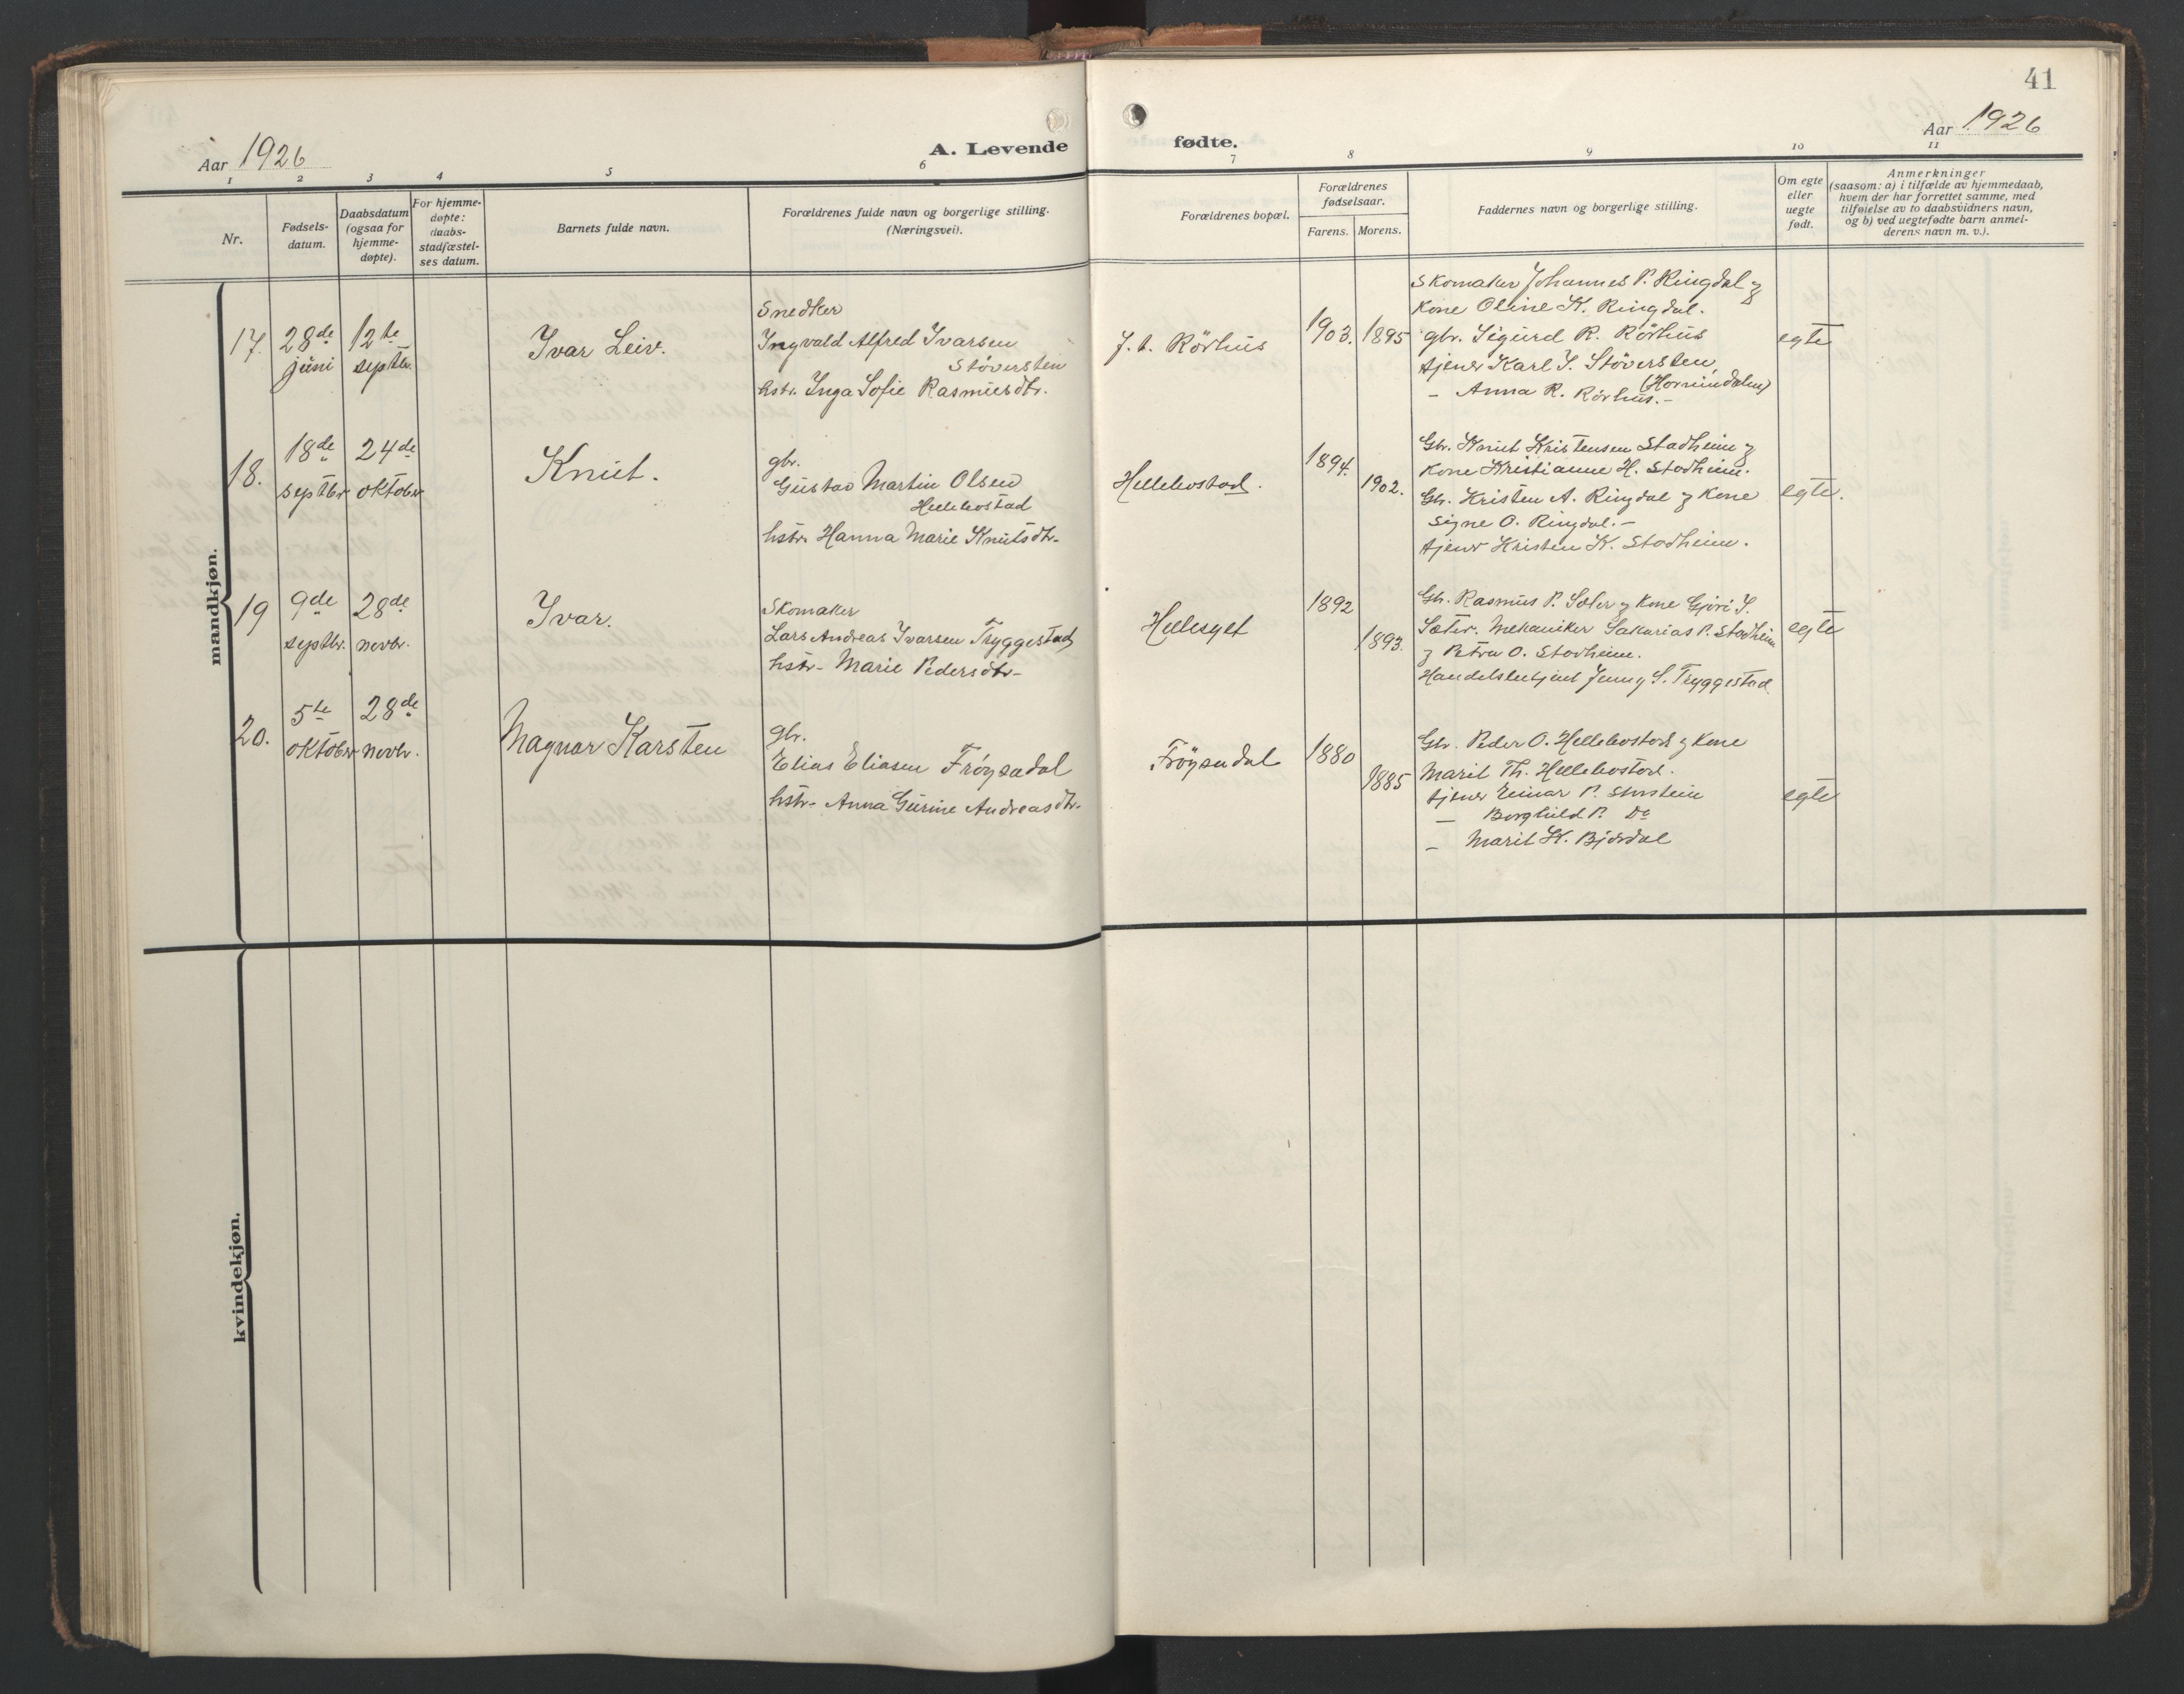 41
Aar 1926
A. Levende
fødte.
Aar 1926
1 2 3 4 5 6 7 8 9 10 11
Nr.
Fødsels-
datum.
Daabsdatum
(ogsaa for
hjemme-
døpte).
For hjemme-
døpte:
daabs-
stadfæstel-
ses datum.
Barnets fulde navn.
Forældrenes fulde navn og borgerlige stilling.
(Næringsvei).
Forældrenes bopæl.
Forældrenes
fødselsaar.
Farens. Morens.
Faddernes navn og borgerlige stilling.
Om egte
eller
uegte
født.
Anmerkninger
(saasom: a) i tilfælde av hjemmedaab,
hvem der har forrettet samme, med
tilføielse av to daabsvidners navn,
og b) ved uegtefødte barn anmel-
derens navn m. v.).
mandkjøn.
17.
28de
juni
12te
septbr.
Ivar Leiv.
Snedker
Ingvald Alfred Ivarsen
Støversten
hstr. Inga Sofie Rasmusdtr.
J. t. Rörhus
1903.
1895
Skomaker Johannes P. Ringdal og
Kone Oline K. Ringdal.
gbr. Sigurd R. Rörhus
tjener Karl I. Støversten,
(Hornindalen)
– Anna R. Rörhus.–
egte
18.
18de
septbr
24de
oktober
Knut.
gbr.
Gustav Martin Olsen
Hellebostad
hstr. Hanna Marie Knutsdtr.
Hellebostad.
1894.
1902.
Gbr. Knut Kristensen Stadheim og
Kone Kristianne H. Stadheim.
Gbr. Kristen A. Ringdal og Kone
Signe O. Ringdal.–
tjener Kristen K. Stadheim.
egte.
19
9de
septbr.
28de
novbr.
Ivar.
Skomaker
Lars Andreas Ivarsen Tryggestad
hstr– Marie Pedersdtr–
Hellesylt
1892
1893.
Gbr. Rasmus P. Sæter og Kone Gjøri I.
Sæter. Mekaniker Sakarias P. Stadheim
og Petra O. Stadheim.
Handelsbetjent Jenny S. Tryggestad
egte
20.
5te
oktober
28de
novbr.
Magnar Karsten
gbr.
Elias Eliasen Frøysadal
hstr– Anna Gurine Andreasdtr.
Frøysadal
1880
1885
Gbr. Peder O. Hellebostad og Kone
Marit Th. Hellebostad.
tjener Einar P.
– Borghild P. Do
– Marit K. Bjørdal
egte
kvindekjøn.